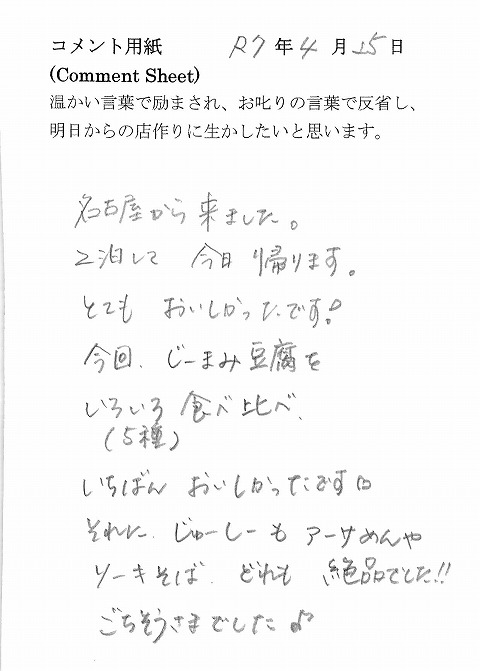 コメント用紙　R7年4月15日
(Comment Sheet)
温かい言葉で励まされ、お叱りの言葉で反省し、
明日からの店作りに生かしたいと思います。
名古屋から来ました。
2泊して 今日 帰ります。
とても おいしかったです!
今回、じーまみ豆腐を
いろいろ 食べ比べ、
(5種)
いちばん おいしかったです
それに、じゅーしーも アーサめんや
ソーキそば、どれも 絶品でした!!
ごちそうさまでした♪